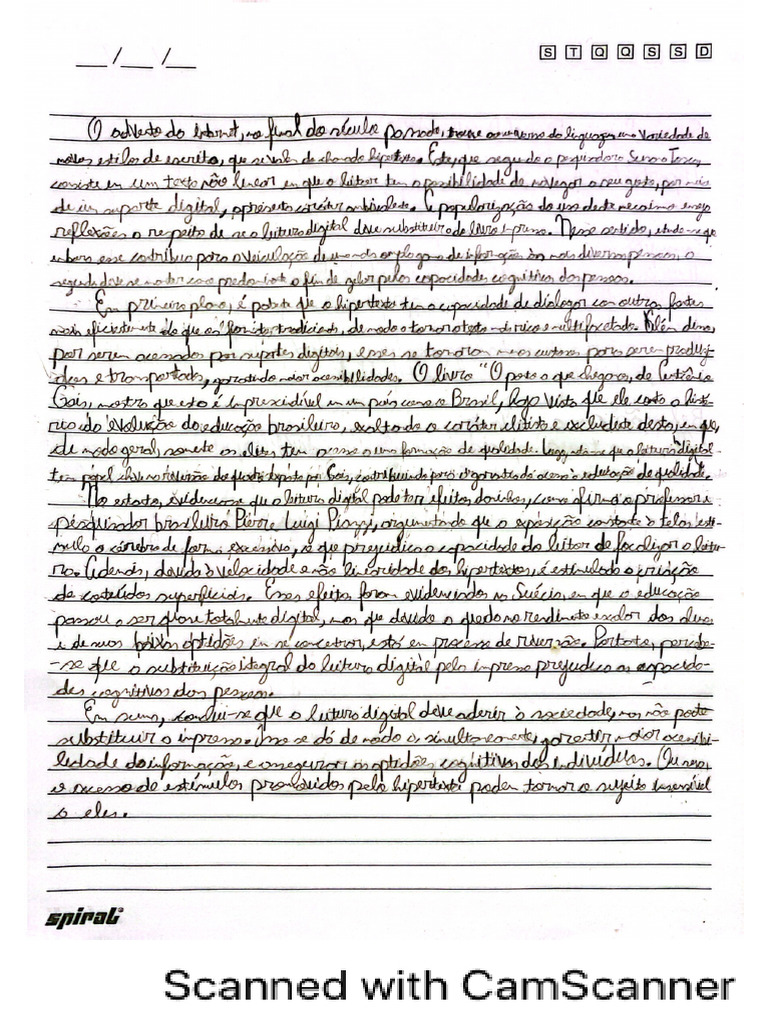 __/__/__ S T Q Q S S D
O advento do Internet, no final do século passado, trouxe ao universo da linguagem uma variedade de
novos estilos de escrita, que se valem do chamado hipertexto. Este, que segundo a pesquisadora
consiste em um texto não linear em que o leitor tem a possibilidade de navegar a seu gosto, por meio
de um suporte digital, apresenta caráter ambivalente. A popularização do uso deste mecanismo enseja
reflexões a respeito de se a leitura digital deve substituir a do livro impresso. Nesse sentido, entende-se que
embora esse contribua para a veiculação de uma gama de informação às mais diversas pessoas, o
segundo deve se manter como predominante a fim de zelar pelas capacidades cognitivas das pessoas.
Em primeiro plano, é patente que o hipertexto tem a capacidade de dialogar com outras fontes
mais eficientemente do que as tradicionais, de modo a tornar o texto mais rico e multifacetado. Além disso,
por serem acessados por suportes digitais, esses se tornam menos custosos para serem produzi-
dos e transportados, garantindo maior acessibilidade. O livro "O ponto a que chegamos, de Antônio
Gois, mostra que isto é imprescindível em um país como o Brasil, haja vista que ele conta a histó-
ria da evolução da educação brasileira, exaltando o caráter elitista e excludente desta, em que,
de modo geral, somente as elites tem acesso a uma formação de qualidade. que a leitura digital
tem papel chave na reversão do quadro exposto por Gois, contribuindo para o acesso a educação de qualidade.
No entanto, evidencia-se que a leitura digital pode ter efeitos daninhos, como afirma o professor e
pesquisador brasileiro Pierre Luigi Piazzi, argumentando que a exposição constante à telas esti-
mula o cérebro de forma excessiva, o que prejudica a capacidade do leitor de focalizar a leitu-
ra. Ademais, devido à velocidade e não linearidade dos hipertextos, é estimulada a criação
de conteúdos superficiais. Esses efeitos foram evidenciados na Suécia, em que a educação
passou a ser quase totalmente digital, mas que devido a queda no rendimento escolar dos alunos
e de suas baixas aptidões em se concentrar, está em processo de reversão. Portanto, percebe-
-se que a substituição integral do leitura digital pela impressa prejudica as capacida-
des cognitivas das pessoas.
Em suma, conclui-se que a leitura digital deve aderir à sociedade, mas não pode
substituir a impressa. Isso se dá de modo a, simultaneamente, garantir maior acessibi-
lidade da informação, e assegurar as aptidões cognitivas dos indivíduos. Ou seja,
o excesso de estímulos promovidos pelo hipertexto podem tornar o sujeito insensível
a eles.
spiral
Scanned with CamScanner